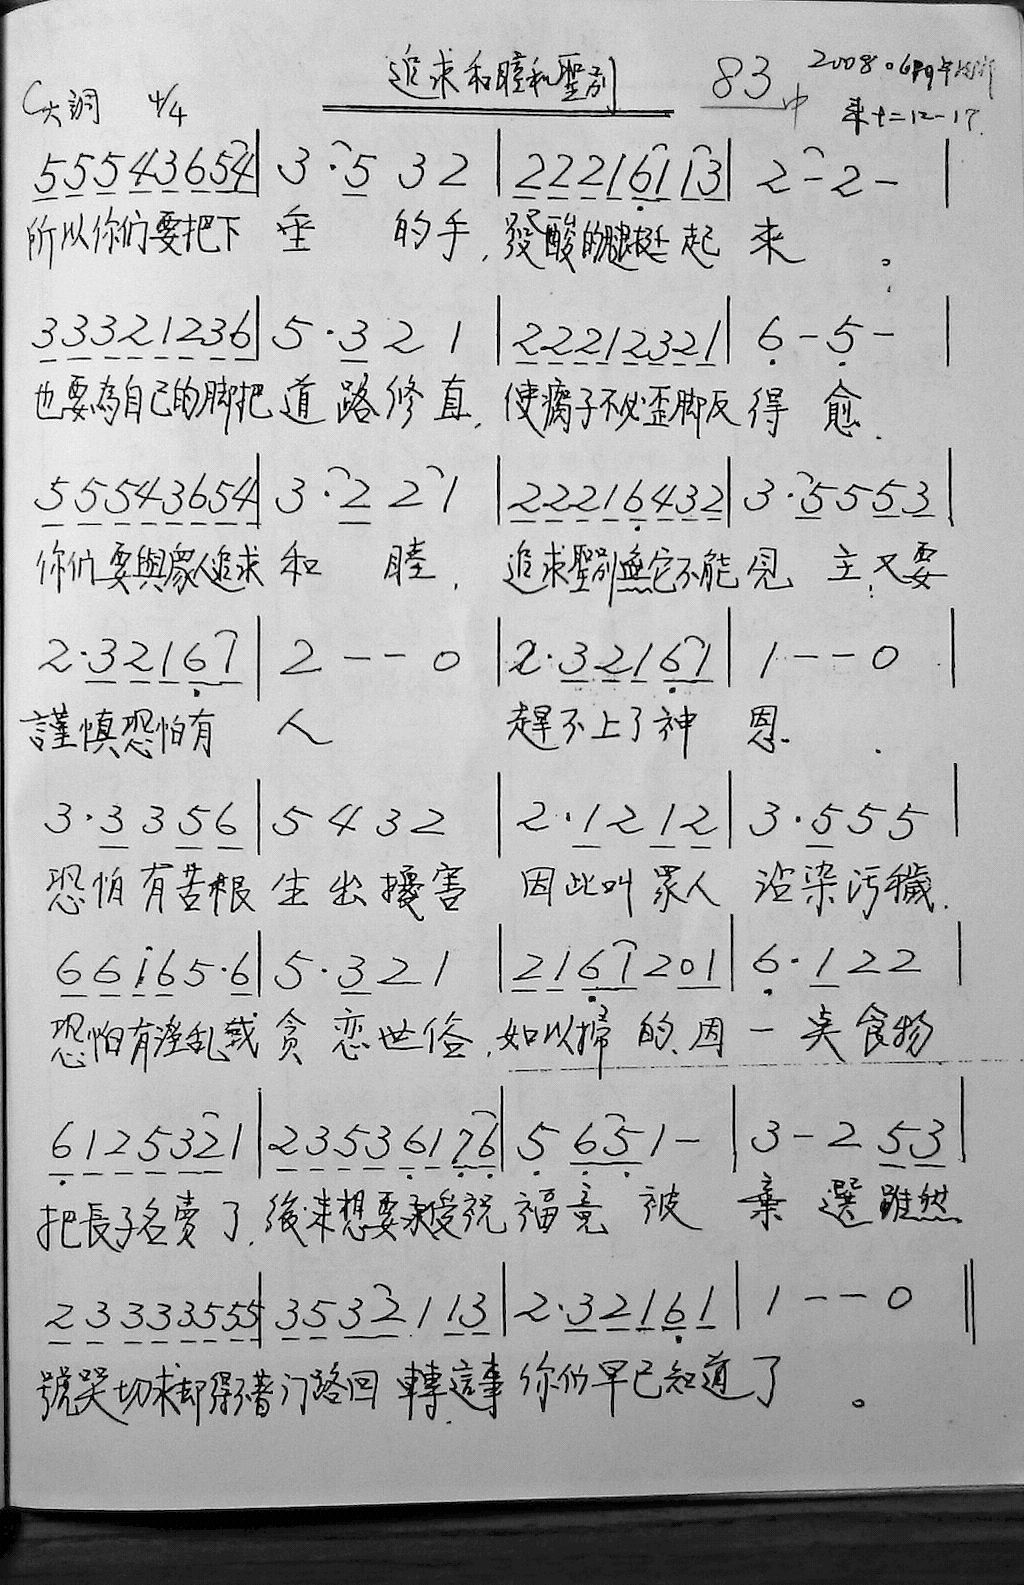 追求和睦和聖別 83 中 2008.6
C大調 4/4 來十二12-17.
5 5 5 4 3 6 5 4 | 3 · 5 3 2 | 2 2 2 1 6 1 1 3 | 2 - 2 - |
所以你们要把下 垂 的手,發酸的腿挺起來。
3 3 3 2 1 2 3 6 | 5 · 3 2 1 | 2 2 2 1 2 3 2 1 | 6 - 5 - |
也要為自己的脚把道路修直,使瘸子不必歪脚反得愈.
5 5 5 4 3 6 5 4 | 3 · 2 2 1 | 2 2 2 1 6 4 3 2 | 3 · 5 5 5 3 |
你们要與眾人追求和 睦,追求聖別無它不能見主;又要
2 · 3 2 1 6 1 | 2 - - 0 | 2 · 3 2 1 6 1 | 1 - - 0 |
謹慎恐怕有 人 趕不上了神恩.
3 · 3 3 5 6 | 5 4 3 2 | 2 · 1 2 1 2 | 3 · 5 5 5 |
恐怕有苦根生出擾害 因此叫眾人沾染污穢.
6 6 1 6 5 · 6 | 5 · 3 2 1 | 2 1 6 1 2 0 1 | 6 · 1 2 2 |
恐怕有淫乱或貪恋世俗,如以掃的、因一 食物
6 1 2 5 3 2 1 | 2 3 5 3 6 1 7 6 | 5 6 5 1 - | 3 - 2 5 3 |
把長子名賣了,後來想要承受祝福竟被棄選雖然
2 3 3 3 3 5 5 5 | 3 5 3 2 1 1 3 | 2 · 3 2 1 6 1 | 1 - - 0 ‖
號哭切求却得不着门路回轉這事你们早已知道了。